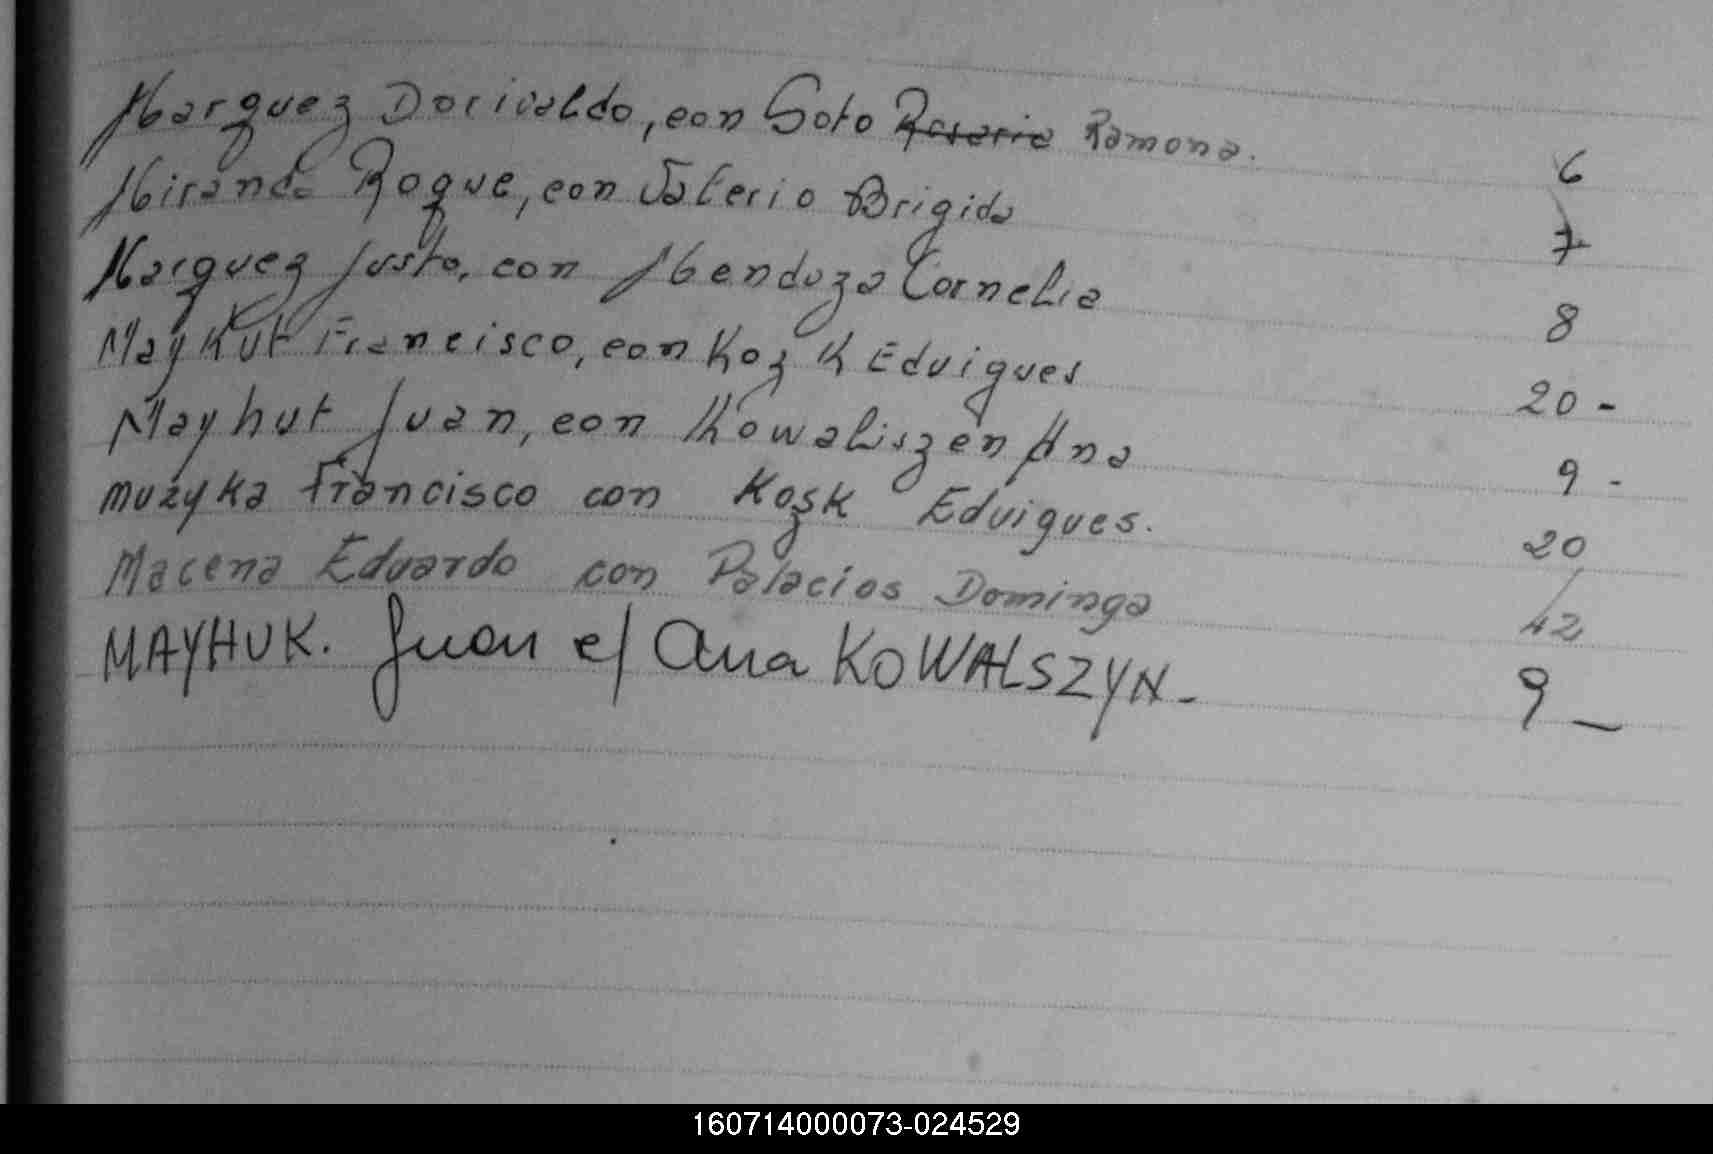 Marquez Dorivaldo, con Soto Rosario Ramona. 6
Miranda Roque, con Valerio Brigida 7
Marquez Justo, con Mendoza Cornelia 8
Maykut Francisco, con Kozk Eduigues 20 -
Mayhut Juan, con Kowaliszen Ana 9 -
muzyka Francisco con Kozk Eduigues. 20
Macena Eduardo con Palacios Dominga 42
MAYHUK. Juan c/ Ana KOWALSZYN- 9 -
160714000073-024529